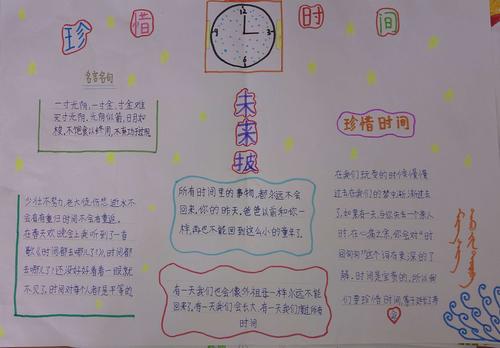 珍惜时间
12
3
6
9
名言名句
一寸光阴,一寸金,寸金难
买寸光阴,光阴似箭,日月如
梭,
少壮不努力,老大徒伤悲,逝水不
会有重归,时间不会有重返。
在春天欢晚会上我听到了一首
歌《时间都去哪儿了!》,时间都
去哪儿了!还没好好看看一眼就
不见了,时间对每个人都是平等的
未来披
所有时间里的事物,都永远不会
回来,你的昨天,爸爸以前和你一
样,再也不能回到这么小的童年了。
有一天我们也会像外祖母一样永远不能
回来了,有一天我们会长大,有一天我们度过所有
时间
珍惜时间
在我们玩耍的时候慢慢
过去在我们的梦中渐渐过去
了,如果有一天,当你失去一个亲人
时,在心痛之余,你会对“时
间匆匆”这个词有更深的了
解,时间是宝贵的,所以我
们要珍惜时间,